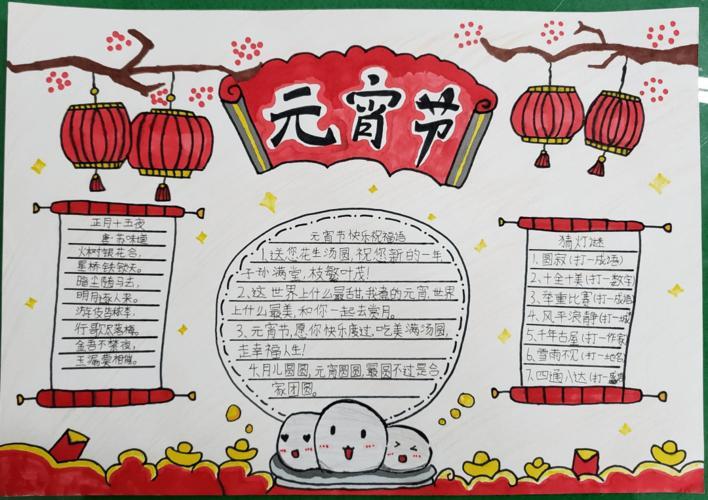 元宵节
正月十五夜
唐·苏味道
火树银花合,
星桥铁锁开。
暗尘随马去,
明月逐人来。
游伎皆秾李,
行歌尽落梅。
金吾不禁夜,
玉漏莫相催。
元宵节快乐祝福语
1、送您花生汤圆,祝您新的一年
子孙满堂,枝繁叶茂!
2、这世界上什么最甜,我煮的元宵,世界
上什么最美,和你一起去赏月。
3、元宵节,愿你快乐度过,吃美满汤圆,
走幸福人生!
4、月儿圆圆,元宵圆圆,最圆不过是合
家团圆。
猜灯谜
1、圆寂(打一成语)
2、十全十美(打一数
3、举重比赛(打一成语
4、风平浪静(打一城
5、千年古屋(打一作家
6、雪雨不(打一地名
7、四通八达(打一